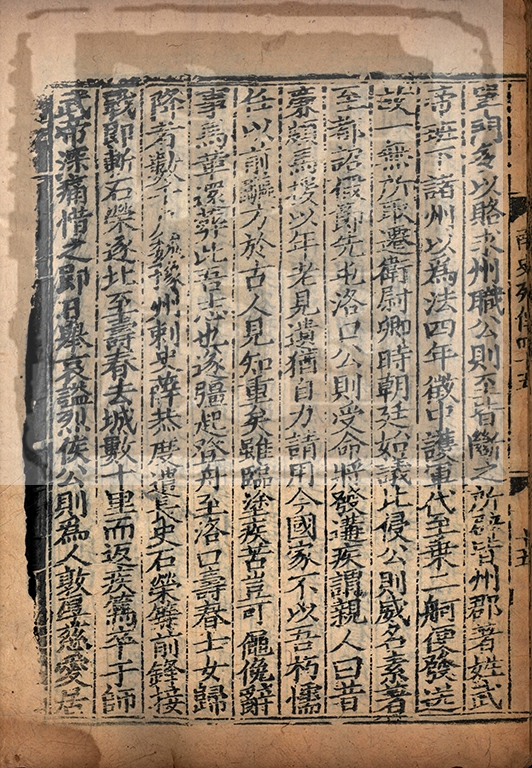 單門多以賂求州職公則至皆斷之所辟皆州郡著姓武
帝班下諸州以為法四年徵中護軍代至乗二舸便發送
故一無所取遷衛尉卿時朝廷始議北侵公則威名素著
至都詔假節先屯洛口公則受命將發遘疾謂親人曰昔
廉頗馬援以年老見遺猶自力請用今國家不以吾朽懦
任以前驅方於古人見知重矣雖臨塗疾苦豈可僶俛辭
事馬革還葬此吾志也遂彊起登舟至洛口壽春士女歸
降者數千戶魏豫州刺史薛恭度遣長史石榮等前鋒接
戰即斬石榮逐北至壽春去城數十里而返疾篤卒于師
武帝深痛惜之即日舉哀謚烈侯公則為人敦厚慈愛居